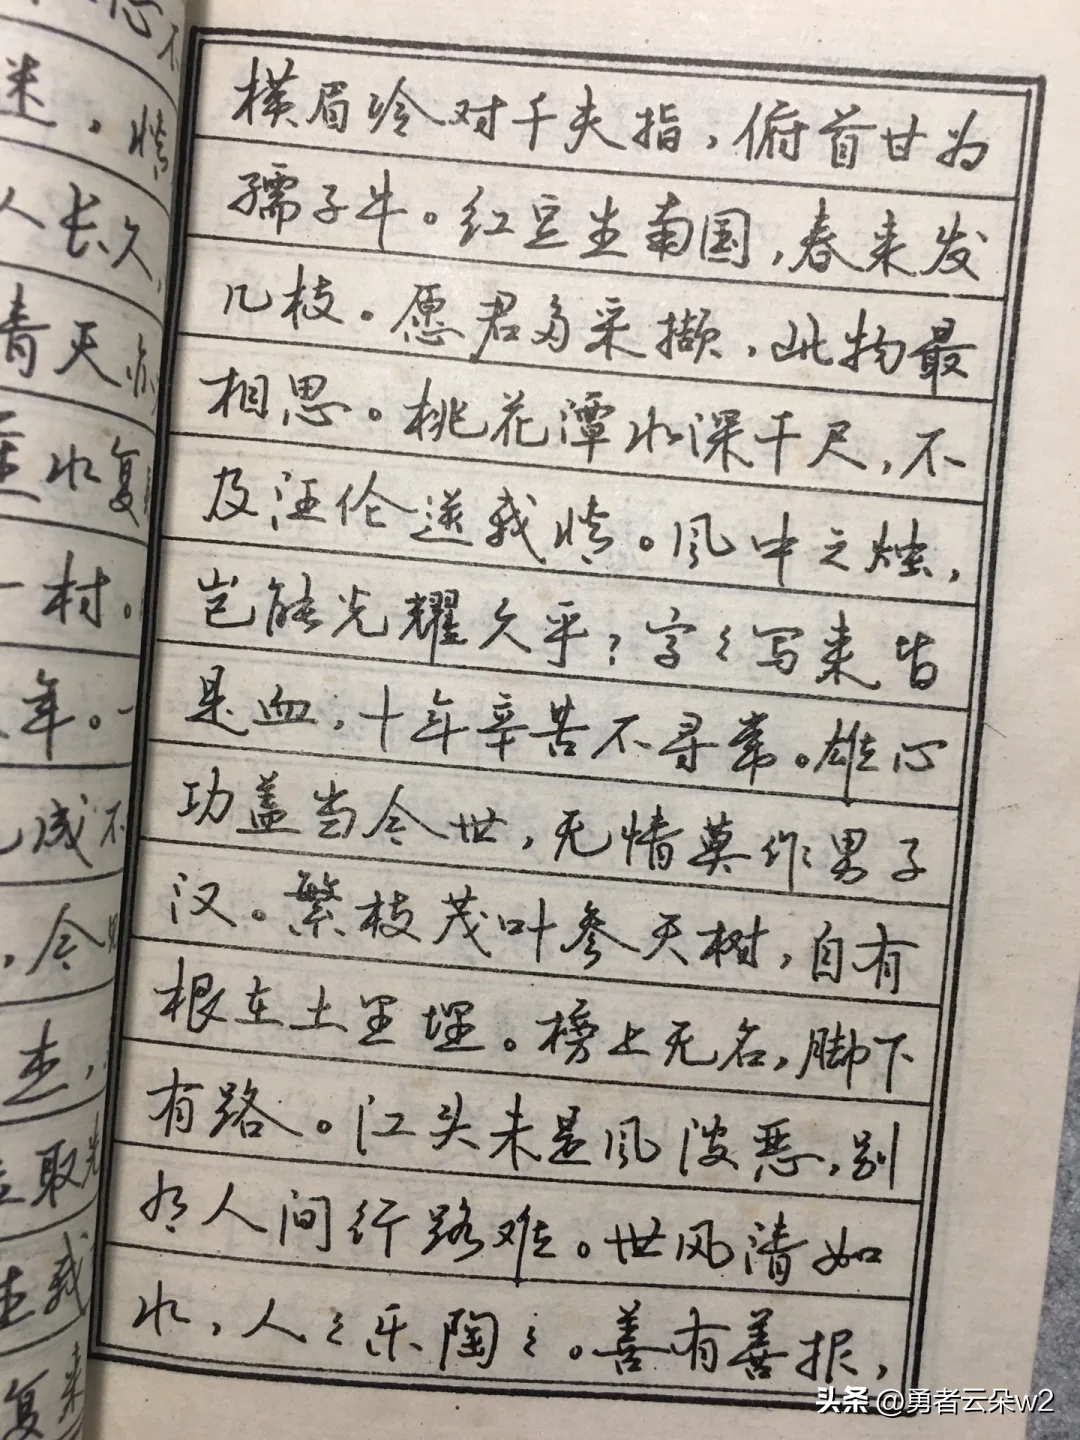 横眉冷对千夫指，俯首甘为
孺子牛。红豆生南国，春来发
几枝。愿君多采撷，此物最
相思。桃花潭水深千尺，不
及汪伦送我情。风中之烛，
岂能光耀久乎？字〻写来皆
是血，十年辛苦不寻常。雄心
功盖当今世，无情莫作男子
汉。繁枝茂叶参天树，自有
根在土里埋。榜上无名，脚下
有路。江头未是风波恶，别
有人间行路难。世风清如
水，人〻乐陶〻。善有善报，
迷，情
人长久，
青天
水复
一村。
年。一
成不
，今
生，
取
我
复来
头条 @勇者云朵w2